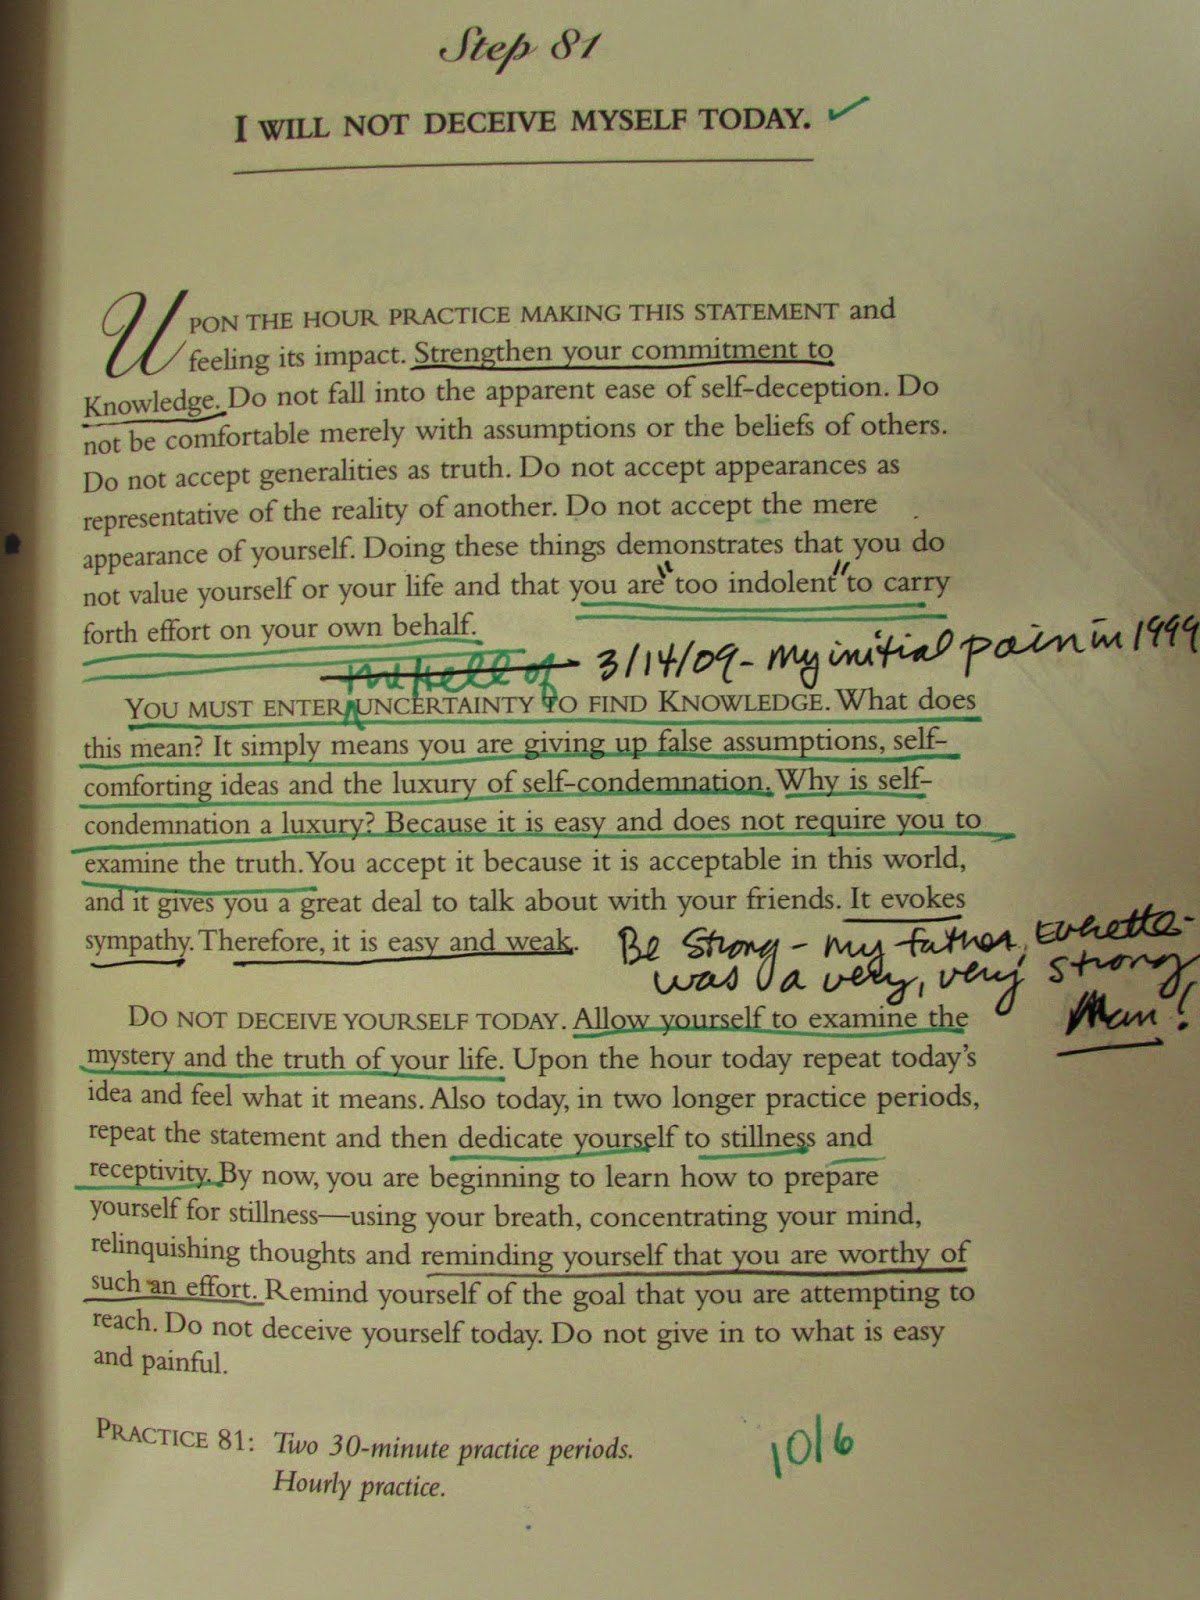 Step 81
I WILL NOT DECEIVE MYSELF TODAY. ✓
UPON THE HOUR PRACTICE MAKING THIS STATEMENT and
feeling its impact. Strengthen your commitment to
Knowledge. Do not fall into the apparent ease of self-deception. Do
not be comfortable merely with assumptions or the beliefs of others.
Do not accept generalities as truth. Do not accept appearances as
representative of the reality of another. Do not accept the mere
appearance of yourself. Doing these things demonstrates that you do
not value yourself or your life and that you are "too indolent" to carry
forth effort on your own behalf.
hell of 3/14/09 - My initial pain in 1999
YOU MUST ENTER UNCERTAINTY TO FIND KNOWLEDGE. What does
this mean? It simply means you are giving up false assumptions, self-
comforting ideas and the luxury of self-condemnation. Why is self-
condemnation a luxury? Because it is easy and does not require you to
examine the truth. You accept it because it is acceptable in this world,
and it gives you a great deal to talk about with your friends. It evokes
sympathy. Therefore, it is easy and weak.
Be Strong - my father, Everette -
was a very, very strong
Man!
DO NOT DECEIVE YOURSELF TODAY. Allow yourself to examine the
mystery and the truth of your life. Upon the hour today repeat today's
idea and feel what it means. Also today, in two longer practice periods,
repeat the statement and then dedicate yourself to stillness and
receptivity. By now, you are beginning to learn how to prepare
yourself for stillness—using your breath, concentrating your mind,
relinquishing thoughts and reminding yourself that you are worthy of
such an effort. Remind yourself of the goal that you are attempting to
reach. Do not deceive yourself today. Do not give in to what is easy
and painful.
PRACTICE 81: Two 30-minute practice periods.
Hourly practice.
10/6